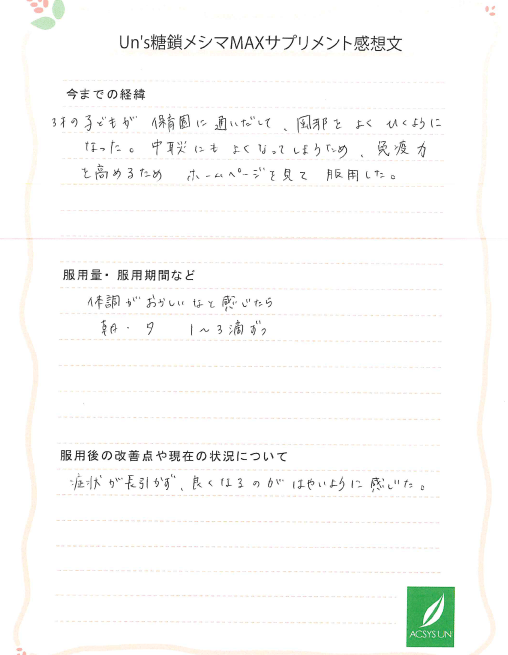 Un's糖鎖メシマMAXサプリメント感想文
今までの経緯
3才の子どもが 保育園に通いだして、風邪を よく ひくように
なった。中耳炎にも よくなってしまうため、免疫力
を高めるため ホームページを見て 服用した。
服用量・服用期間など
体調がおかしいなと感じたら
朝・夕 1～3滴ずつ
服用後の改善点や現在の状況について
症状が長引かず、良くなるのが はやいように 感じた。
ACSYS UN